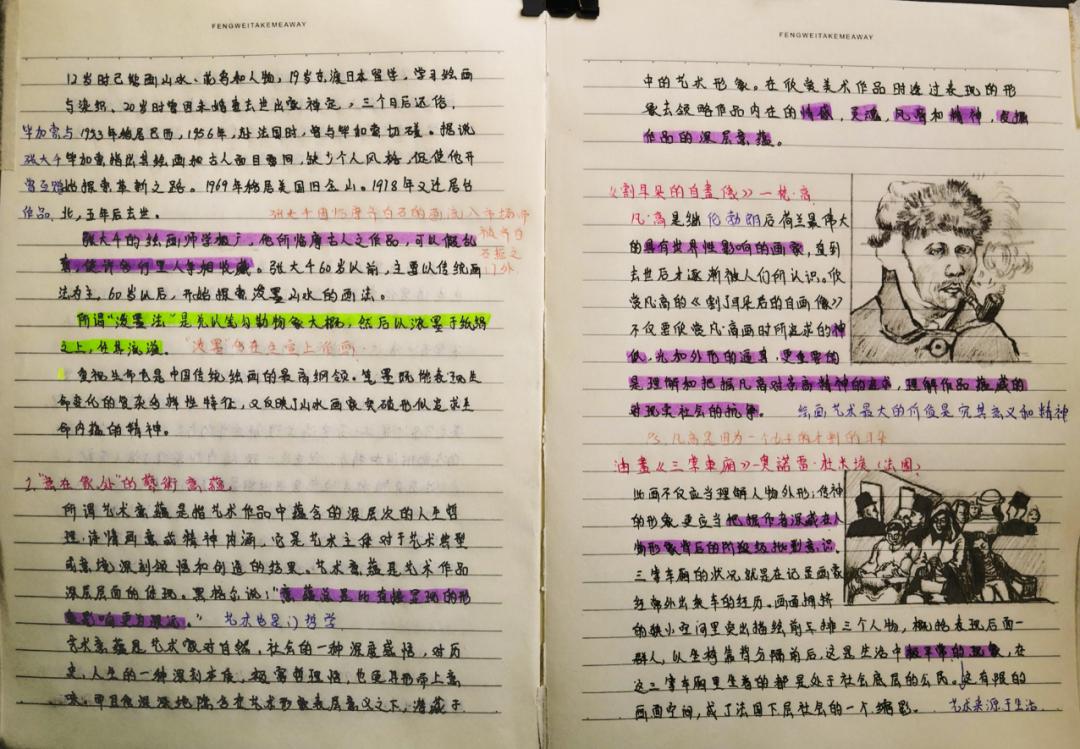 FENGWEITAKEMEAWAY
12岁时已能画山水、花鸟和人物，19岁东渡日本留学，学习绘画
与染织、20岁时曾因未婚妻去世出家禅定，三个月后还俗，
1953年移居巴西，1956年，赴法国时，曾与毕加索切磋。据说
毕加索指出其绘画和古人面目雷同，缺少个人风格，促使他开
始探索革新之路。1969年移居美国旧金山。1978年又迁居台
北，五年后去世。
毕加索与
张大千
作品、
张大千的绘画师学极广，他所临摹古人之作品，可以假乱
真，使许多行里人争相收藏。张大千60岁以前，主要以传统画
法为主，60岁以后，开始探索泼墨山水的画法。
所谓“泼墨法”是先以笔勾勒物象大概，然后以泼墨于纸绢
之上，任其流淌。
重视生命也是中国传统绘画的最高纲领。笔墨既能表现生
命变化的复杂多样性特征，又反映了山水画家突破形似追求生
命内蕴的精神。
2.“意在象外”的藝術意蕴。
所谓艺术意蕴是指艺术作品中蕴含的深层次的人生哲
理、诗情画意或精神内涵，它是艺术主体对于艺术典型
或意境深刻领悟和创造的结果。艺术意蕴是艺术作品
深层层面的体现。黑格尔说：“意蕴总是比直接显现的形
象影响更为深远。” 艺术也是门哲学
艺术意蕴是艺术家对自然，社会的一种深度感悟，对历
史，人生的一种深刻
味，而且很深深地隐含在艺术形象表层意义之下，潜藏于
FENGWEITAKEMEAWAY
中的艺术形象。在欣赏美术作品时透过表现的形
象去领略作品内在的情感，灵魂，风骨和精神，
作品的深层意蕴。
《割耳朵的自画像》—梵·高
凡·高是继伦勃朗后荷兰最伟大
的具有世界性影响的画家，直到
去世后才逐渐被人们所认识。欣
赏凡高的《割了耳朵后的自画像》
不仅要欣赏凡·高画时所追求的神
似，光和外形的逼真，更重要的
是理解和把握凡高对崇高精神的追求，理解作品蕴藏的
对现实社会的抗争。 绘画艺术最大的价值是究其意义和精神
油畫《三等車厢》—奥諾雷·杜米埃（法國）
此画不仅应当理解人物外形，传神
的形象，更应当把握作者深藏在人
物形象背后的阶级批判意识。
三等车厢的状况就是在记是画家
经常外出乘车的经历。画面拥挤
的狭小空间里突出描绘前三排三个人物，概括表现后面一
群人，以坐椅靠背分隔前后，这是生活中极平常的现象，在
这三等车厢里坐着的都是处于社会底层的公民。这有限的
画面空间，成了法国下层社会的一个缩影。 艺术来源于生活